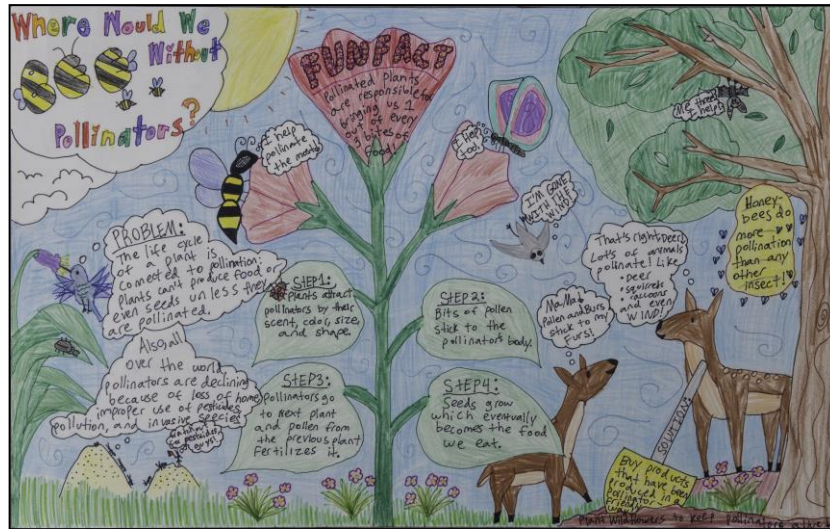 Where Would We
Without
Pollinators?
FUN FACT
Pollinated plants
are responsible for
bringing us 1
out of every
3 bites of
food!
I help
pollinate
the most!
I help
too!
Me three!
I help!
I'M GONE
WITH THE
WIND!
Honey-
bees do
more
pollination
than any
other
insect!
PROBLEM:
The life cycle
of a plant is
connected to pollination:
Plants can't produce food or
even seeds unless they
are pollinated.
Also, all
over the world
pollinators are declining
because of loss of home,
improper use of pesticides,
pollution, and invasive species
STEP1:
Plants attract
pollinators by their
scent, color, size,
and shape.
STEP2:
Bits of pollen
stick to the
pollinator's body.
STEP3:
Pollinators go
to next plant
and pollen from
the previous plant
fertilizes it.
STEP4:
Seeds grow
which eventually
becomes the food
we eat.
Mama!
Pollen and Burs
stick to my
Furs!
That's right, Deer!
Lots of animals
pollinate! Like
• Deer
• squirrels
• raccoons
and even
WIND!
SOLUTION:
Buy products
that have been
produced in a
pollinator
friendly
way!
Plant wildflowers to keep pollinators